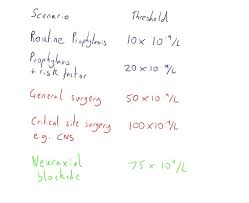 Scenario Threshold
Routine Prophylaxis 10 x 10⁹/L
Prophylaxis
+ risk factor 20 x 10⁹/L
General surgery 50 x 10⁹/L
Critical site surgery 100 x 10⁹/L
e.g. CNS
Neuraxial 75 x 10⁹/L
blockade